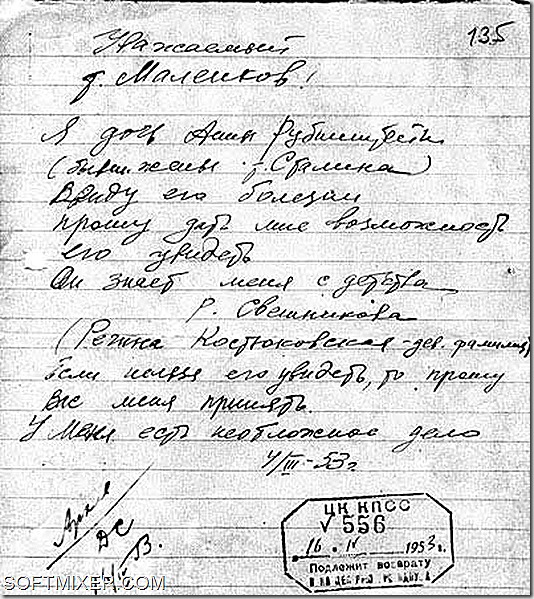 135
Уважаемый
т. Маленков!
Я дочь Анны Рубинштейн
(бывш. жены т. Сталина)
Ввиду его болезни
прошу дать мне возможность
его увидеть
Он знает меня с детства
Р. Свешникова
(Регина Костюковская - дев. фамилия)
Если нельзя его увидеть, то прошу
Вас меня принять.
У меня есть неотложное дело
4/III-53г
Архив
ЦК КПСС
√ 556
16. IV 1953г.
Подлежит возврату
SOFTMIXER.COM